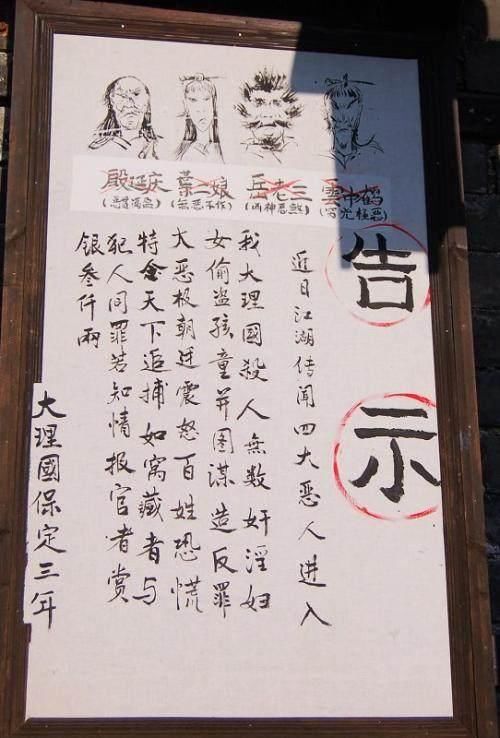 殷延庆
(恶貫满盈)
葉二娘
(無恶不作)
岳老三
(凶神恶煞)
雲中鹤
(穷凶極恶)
告示
近日江湖传闻四大恶人进入
我大理國殺人無数奸淫妇
女偷盗孩童并图谋造反罪
大恶极朝廷震怒百姓恐慌
特令天下追捕如窝藏者与
犯人同罪若知情报官者赏
银叁仟兩
大理國保定三年